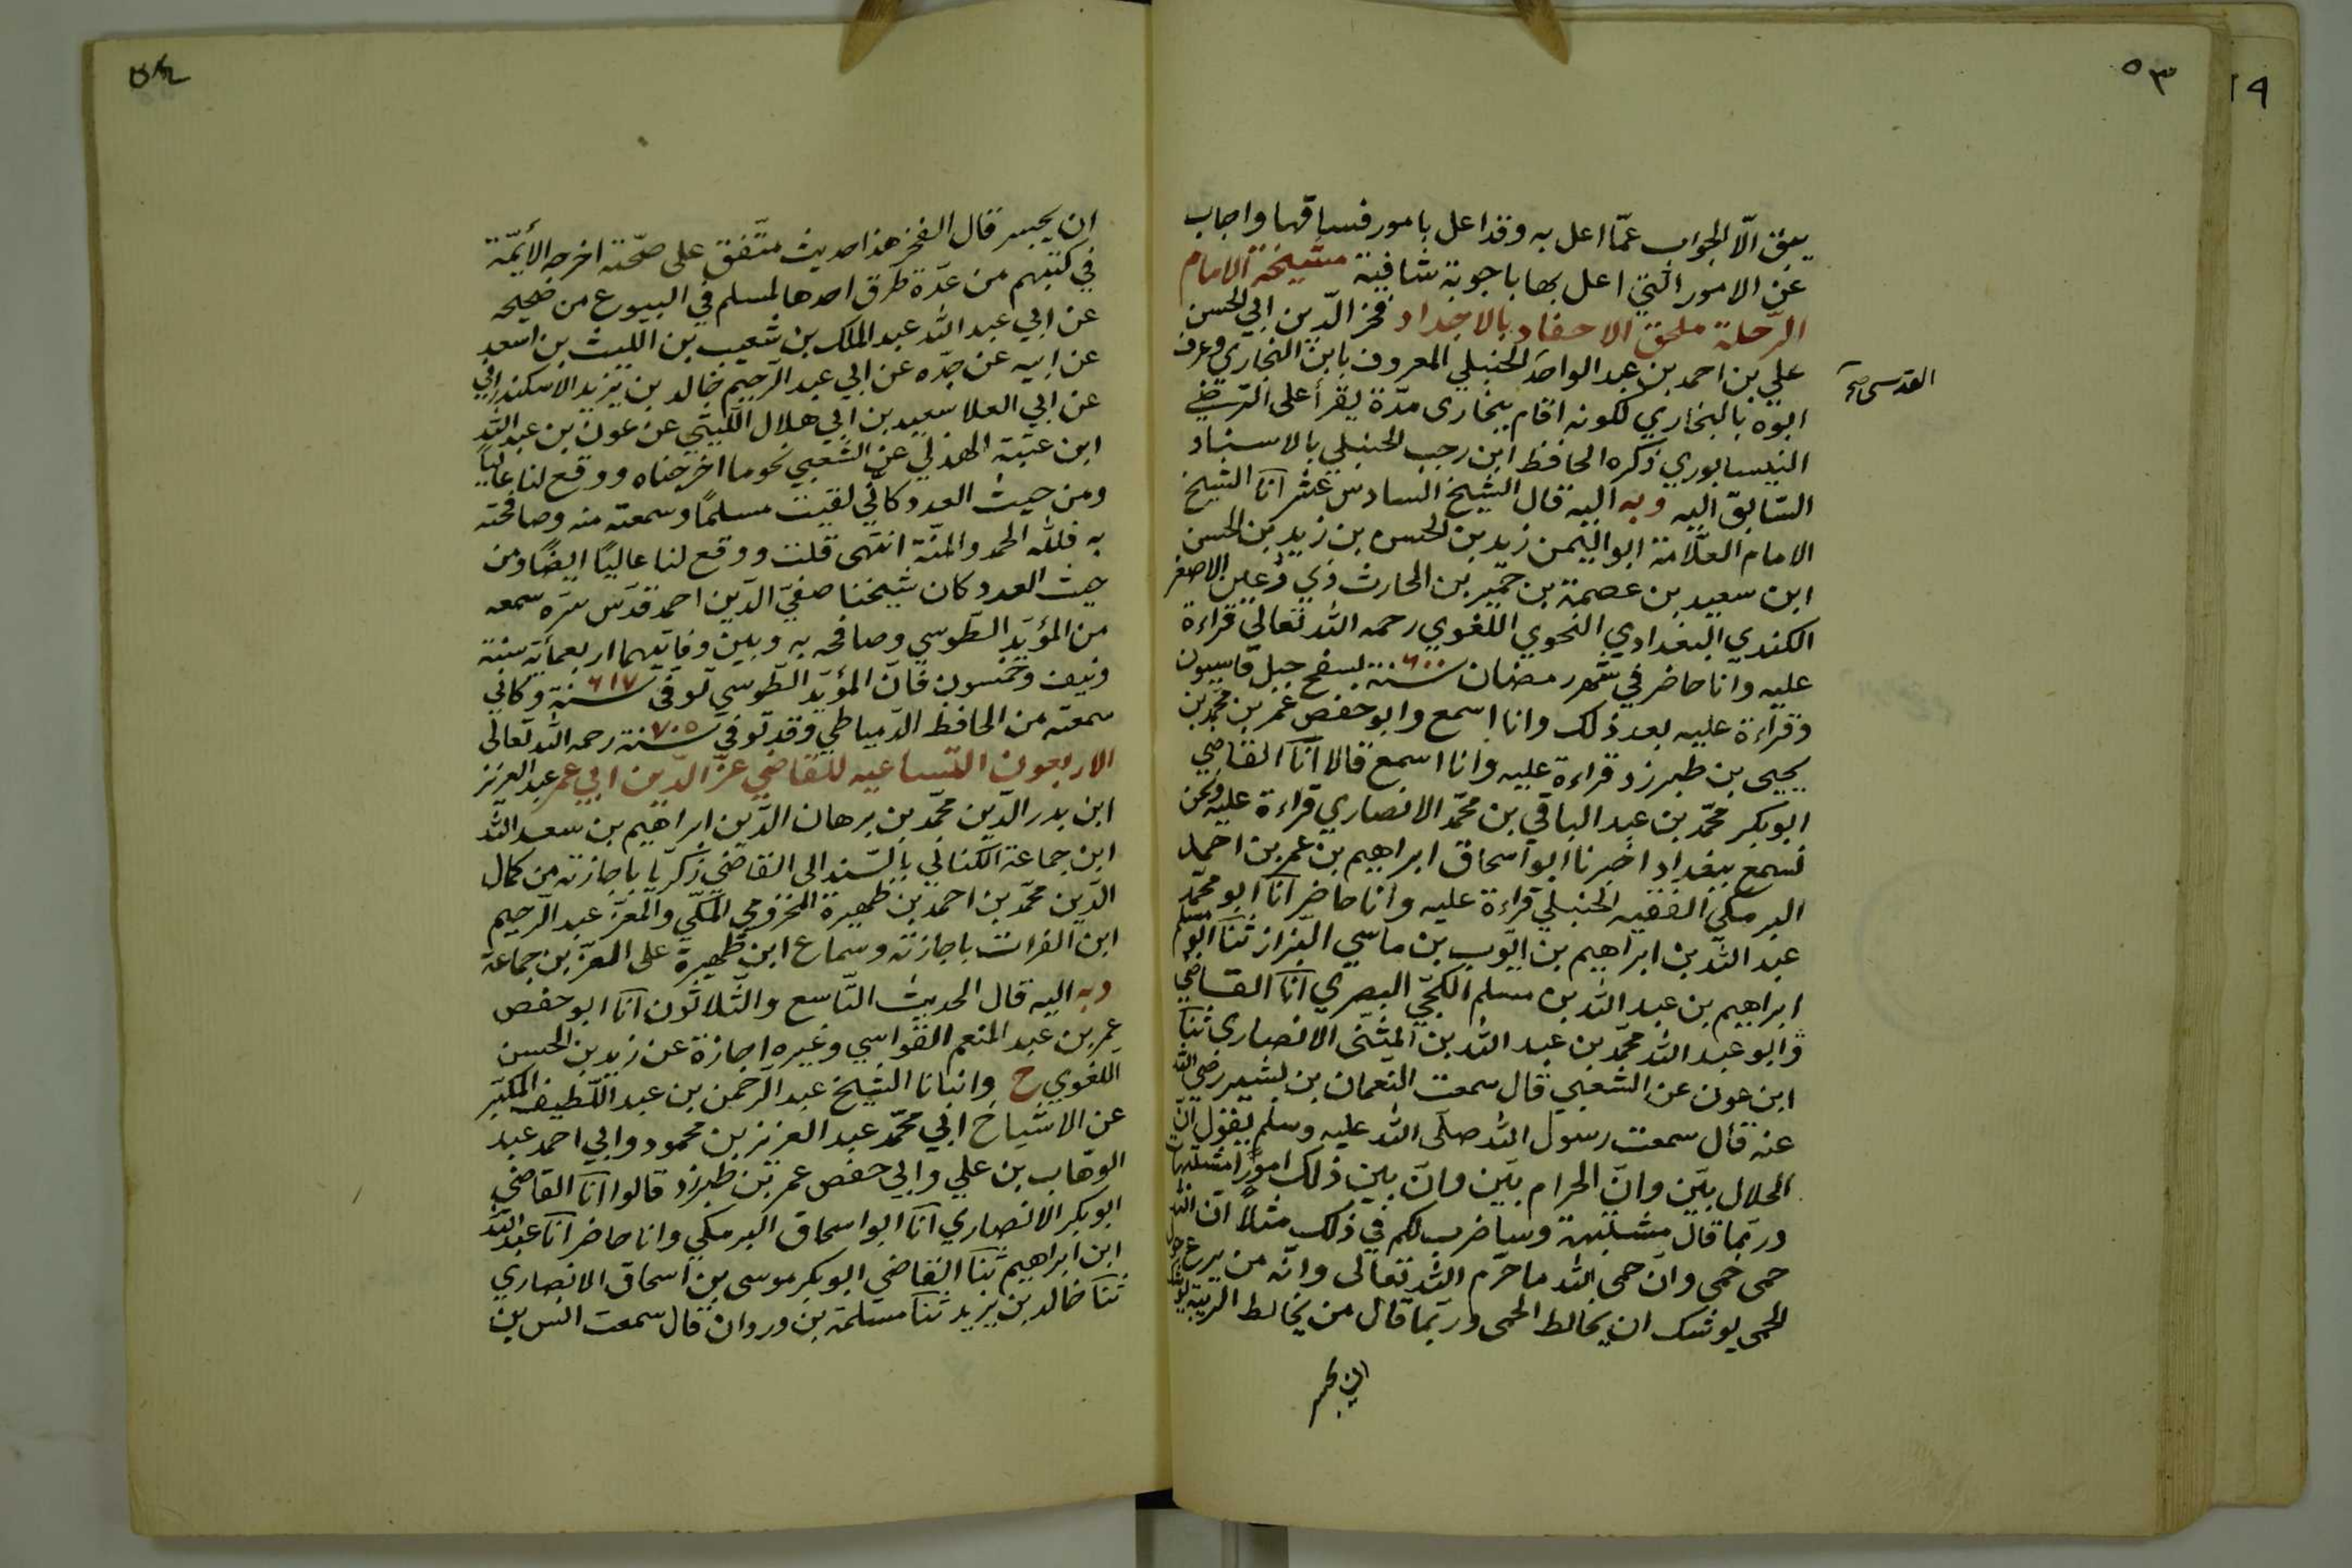 ٥٣
١٩
يبق الّا الجواب عمّا اعل به وقد اعل بامور فساقها واجاب
عن الامور التي اعل بها باجوبة شافية مشيخة الامام
الرّحلة ملحق الاحفاد بالاجداد فخر الدّين ابي الحسن
علي بن احمد بن عبد الواحد الحنبلي المعروف بابن البخاري وعرف
المقدسي صح
ابوه بالبخاري لكونه اقام ببخارى مدّة يقرأ على الرّضي
النيسابوري ذكره الحافظ ابن رجب الحنبلي بالاسناد
السّابق اليه وبه اليه قال الشيخ السادس عشر انا الشيخ
الامام العلّامة ابو اليمن زيد بن الحسن بن زيد بن الحسن
ابن سعيد بن عصمة بن حمير بن الحارث ذي رعين الاصغر
الكندي البغدادي النحوي اللغوي رحمه الله تعالى قراءة
عليه وانا حاضر في شهر رمضان سنة ٦٠٠ بسفح جبل قاسيون
وقراءة عليه بعد ذلك وانا اسمع وابو حفص عمر بن محمّد بن
يحيى بن طبرزد قراءة عليه وانا اسمع قالا انا القاضي
ابو بكر محمّد بن عبد الباقي بن محمّد الانصاري قراءة عليه ونحن
نسمع ببغداد اخبرنا ابو اسحاق ابراهيم بن عمر بن احمد
البرمكي الفقيه الحنبلي قراءة عليه وانا حاضر انا ابو محمّد
عبد الله بن ابراهيم بن ايّوب بن ماسي البزاز ثنا ابو مسلم
ابراهيم بن عبد الله بن مسلم الكجّي البصري انا القاضي
وابو عبد الله محمّد بن عبد الله بن المثنّى الانصاري ثنا
ابن عون عن الشعبي قال سمعت النعمان بن بشير رضي الله
عنه قال سمعت رسول الله صلّى الله عليه وسلم يقول انّ
الحلال بيّن وانّ الحرام بيّن وانّ بين ذلك امورًا مشتبهات
وربّما قال مشتبهة وساضرب لكم في ذلك مثلًا انّ الله
حمى حمى وانّ حمى الله ما حرّم الله تعالى وانّه من يرع حول
الحمى يوشك ان يخالط الحمى وربّما قال من يخالط الريبة يوشك
ان يجسر
٥٤
ان يجسر قال الفخر هذا حديث متّفق على صحّته اخرجه الأئمّة
في كتبهم من عدّة طرق احدها لمسلم في البيوع من صحيحه
عن ابي عبد الله عبد الملك بن شعيب بن الليث بن سعد
عن ابيه عن جدّه عن ابي عبد الرّحيم خالد بن يزيد الاسكندراني
عن ابي العلا سعيد بن ابي هلال اللّيثي عن عون بن عبد الله
ابن عتبة الهذلي عن الشّعبي نحو ما اخرجناه ووقع لنا عاليًا
ومن حيث العدد كانّي لقيت مسلمًا وسمعته منه وصافحته
به فللّه الحمد والمنّة انتهى قلت ووقع لنا عاليًا ايضًا ومن
حيث العدد كان شيخنا صفيّ الدّين احمد قدّس سرّه سمعه
من المؤيّد الطّوسي وصافحه به وبين وفاتيهما اربعمأئة سنة
ونيف وخمسون فانّ المؤيّد الطّوسي توفّي سنة ٦١٧ وكانّي
سمعته من الحافظ الدّمياطي وقد توفّي سنة ٧٠٥ رحمه الله تعالى
الاربعون التّساعيه للقاضي عزّ الدّين ابي عمر عبد العزيز
ابن بدر الدّين محمّد بن برهان الدّين ابراهيم بن سعد الله
ابن جماعة الكناني بالسّند الى القاضي زكريّا باجازته من كمال
الدّين محمّد بن احمد بن ظهيرة المخزومي المكّي والمعزّ عبد الرّحيم
ابن الفرات باجازته وسماع ابن ظهيرة على المعزّ بن جماعة
وبه اليه قال الحديث التّاسع والثّلاثون انا ابو حفص
عمر بن عبد المنعم القواسي وغيره اجازة عن زيد بن الحسن
اللّغوي ح وانبانا الشيخ عبد الرّحمن بن عبد اللّطيف المكبّر
عن الاشياخ ابي محمّد عبد العزيز بن محمود وابي احمد عبد
الوهّاب بن علي وابي حفص عمر بن طبرزد قالوا انا القاضي
ابو بكر الانصاري انا ابو اسحاق البرمكي وانا حاضر انا عبد الله
ابن ابراهيم ثنا القاضي ابو بكر موسى بن اسحاق الانصاري
ثنا خالد بن يزيد ثنا مسلمة بن وردان قال سمعت انس بن